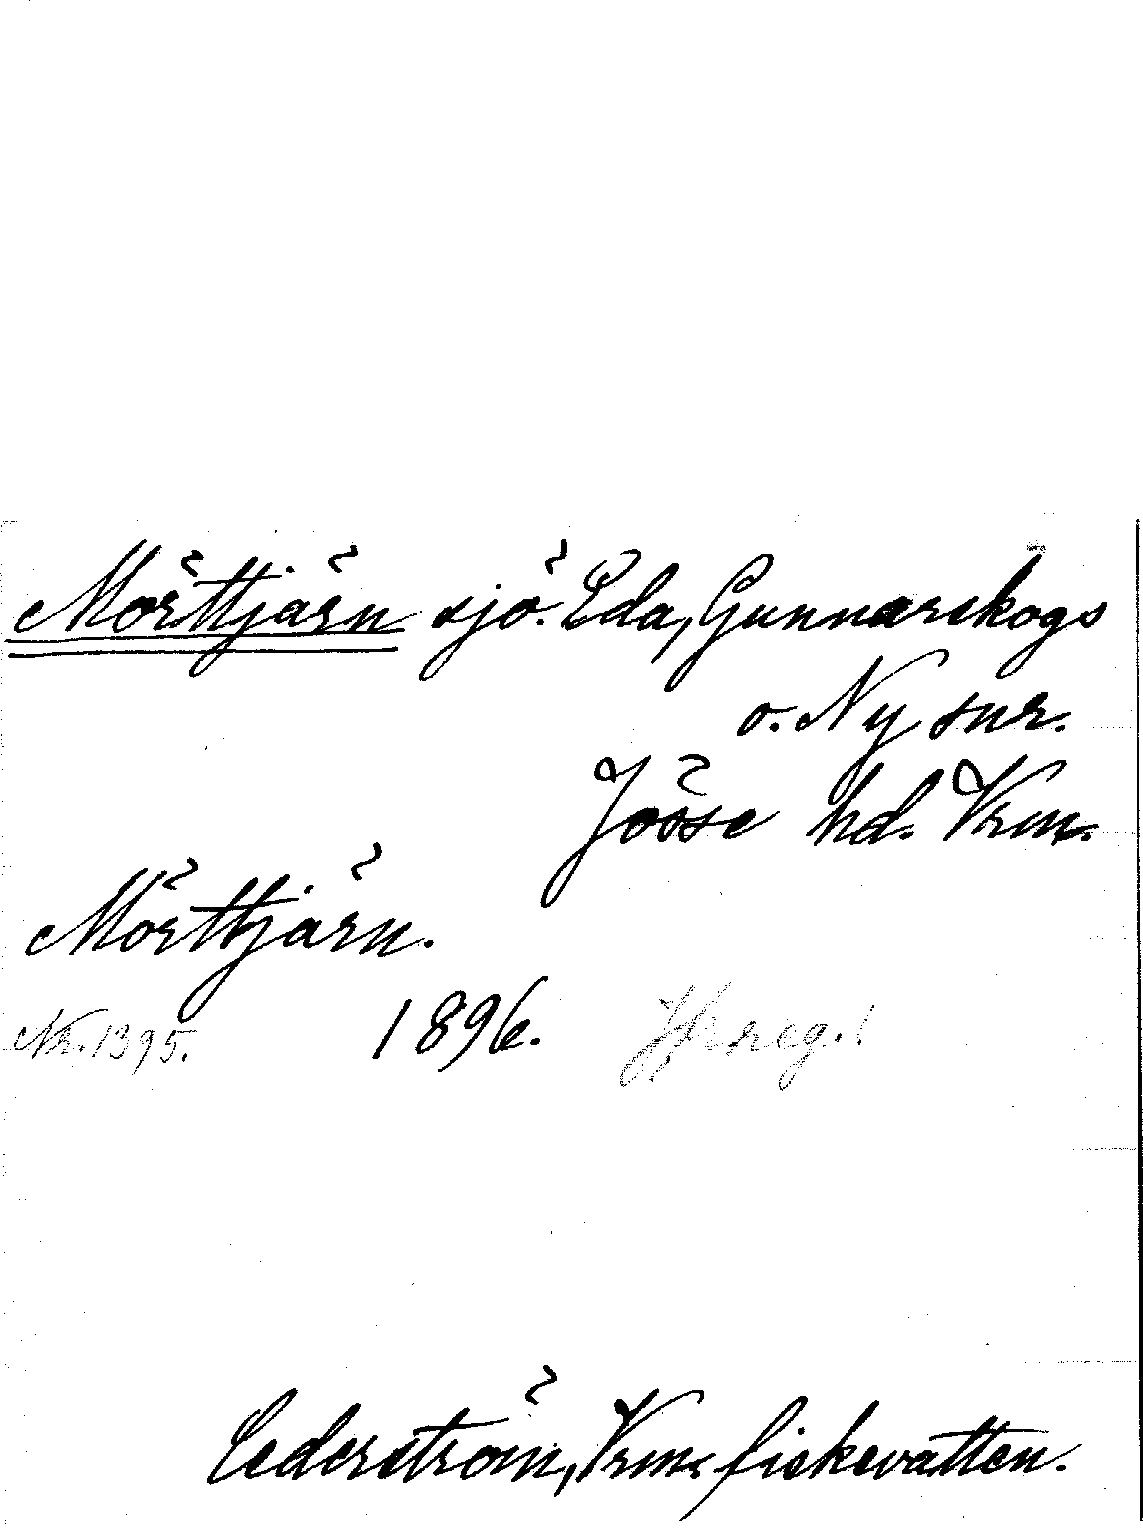 Mörttjärn sjö. Eda, Gunnarskogs
o. Ny snr.
Jösse hd. Vrm.
Mörttjärn.
Nr. 1395. 1896. Hfrreg.!
Cederström, Vrm:s fiskevatten.